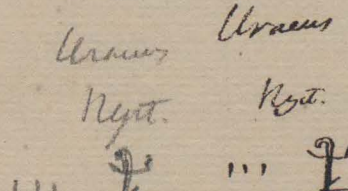 Uraeus Uraeus
Nyrt. Nyrt.